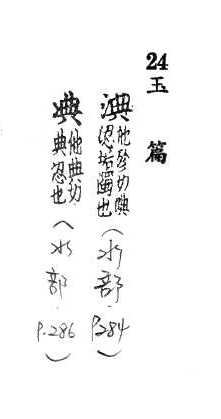 24玉篇
淟他殄切淟涊垢濁也(水部.P.284)
㥏他典切㥏忍也(水部.P.286)